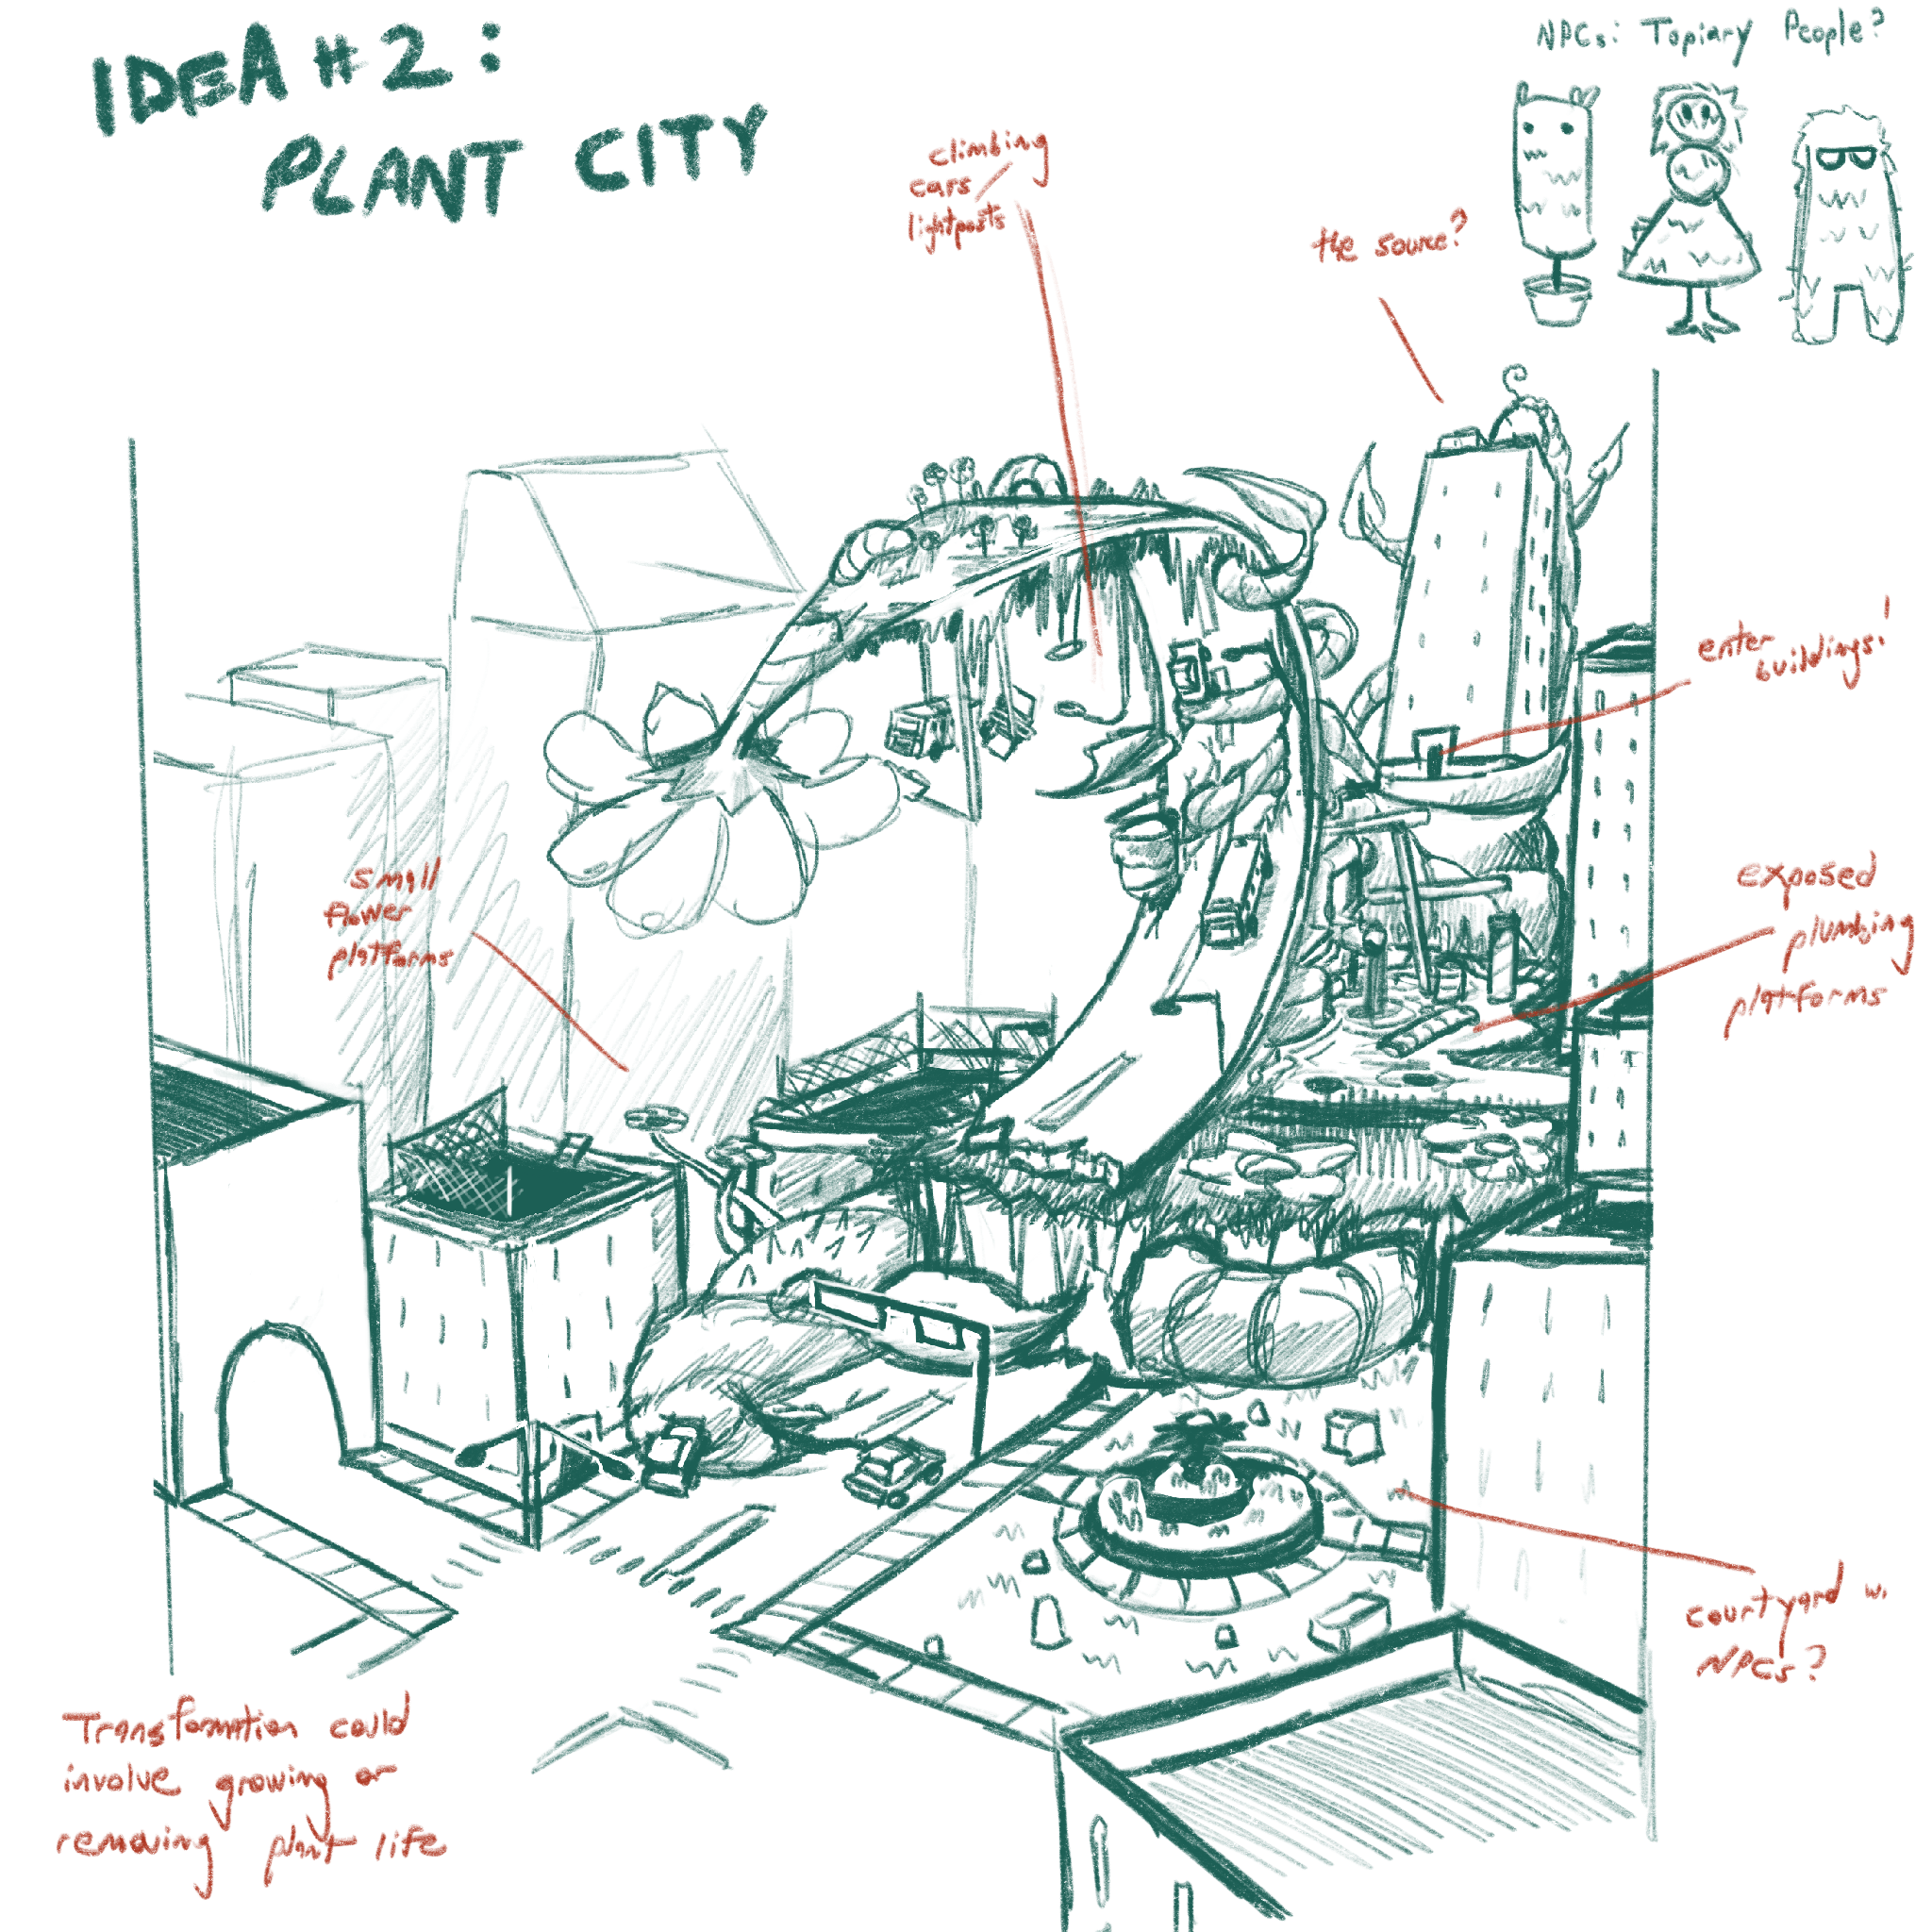 IDEA #2:
PLANT CITY
NPCs: Topiary People?
climbing
cars /
lightposts
the source?
enter
buildings!
small
flower
platforms
exposed
plumbing
platforms
courtyard w.
NPCs?
Transformation could
involve growing or
removing plant life